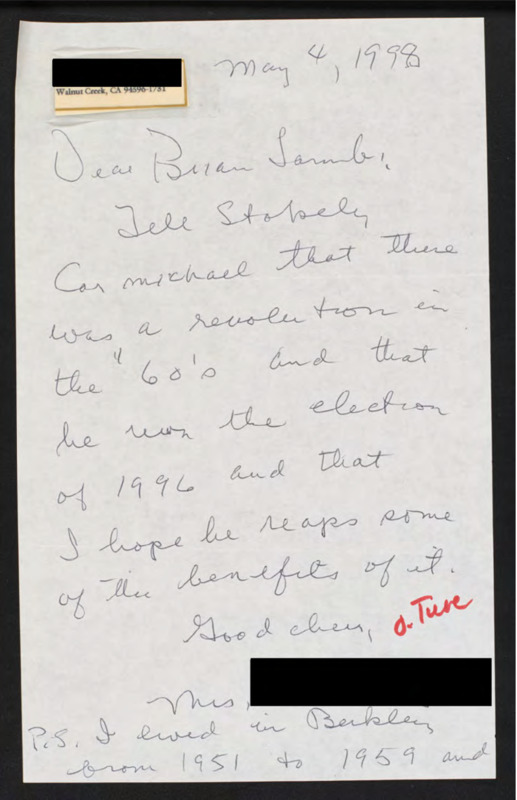 May 4, 1998
Walnut Creek, CA 94596-1731
Dear Brian Lamb:,
Tell Stokely
Carmichael that there
was a revolution in
the "60's and that
he won the election
of 1996 and that
I hope he reaps some
of the benefits of it.
Good cheer,
Mrs.
P.S. I lived in Berkley
from 1951 to 1959 and